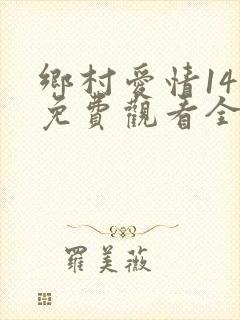 鄉村愛情14
免費觀看全
羅美薇